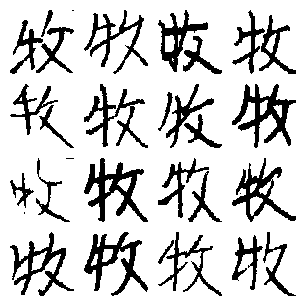 牧牧牧牧
牧牧牧牧
牧牧牧牧
牧牧牧牧